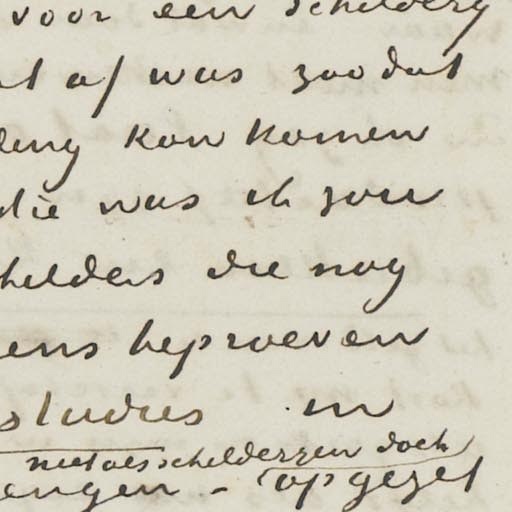 voor een schildery
t af was zoodat
ding kon komen
die was ik zou
hilders die nog
ens beproeven
studies in
niet als schilderyen doch
engen - opgezet